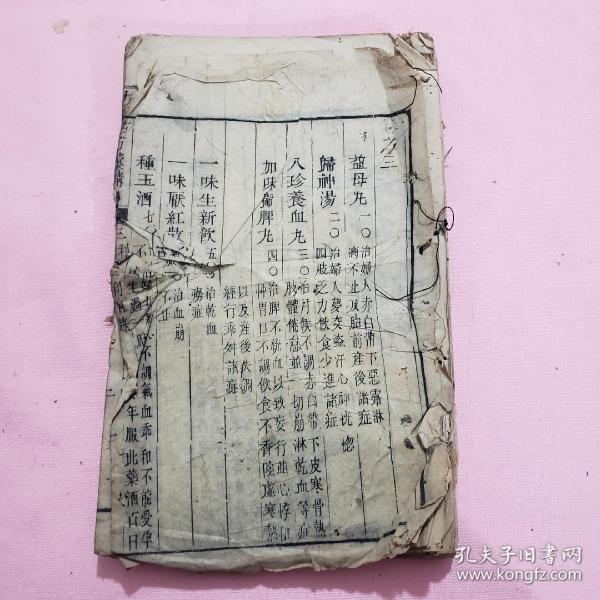 卷之三
益母丸 一〇治婦人赤白帶下惡露淋
漓不止及胎前產後諸症
歸神湯 二〇治婦人夢交盜汗心神恍惚
四肢乏力飲食少進諸症
八珍養血丸 三〇治月候不調赤白帶下皮寒骨熱
肢體倦怠並一切崩淋乾血等症
加味歸脾丸 四〇治脾不統血以致妄行並心悸
脾胃不調飲食不香陰虛寒熱
以及產後失調
經行乖舛諸症
一味生新飲 五 治乾血
癆症
一味厭紅散 治血崩
不止
種玉酒 七 不調氣血乖和不能受孕
年服此藥酒百日
孔夫子旧书网
www.kongfz.com